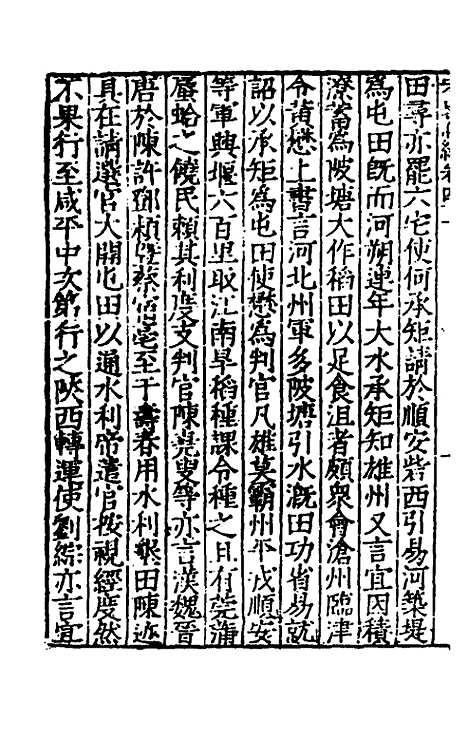 田尋亦罷六宅使何承矩請於順安砦西引易河築堤
爲屯田旣而河朔連年大水承矩知雄州又言宜因積
潦蓄爲陂塘大作稻田以足食沮者頗衆會滄州臨津
令黃懋上書言河北州軍多陂塘引水漑田功省易就
詔以承矩爲屯田使懋爲判官凡雄莫霸州平戎順安
等軍興堰六百里取江南早稻種課令種之且有莞蒲
蜃蛤之饒民賴其利度支判官陳堯叟等亦言漢魏晉
唐於陳許鄧潁曁蔡宿亳至于壽春用水利墾田陳迹
具在請選官大開屯田以通水利帝遣官按視經度然
不果行至咸平中次第行之陝西轉運使劉綜亦言宜